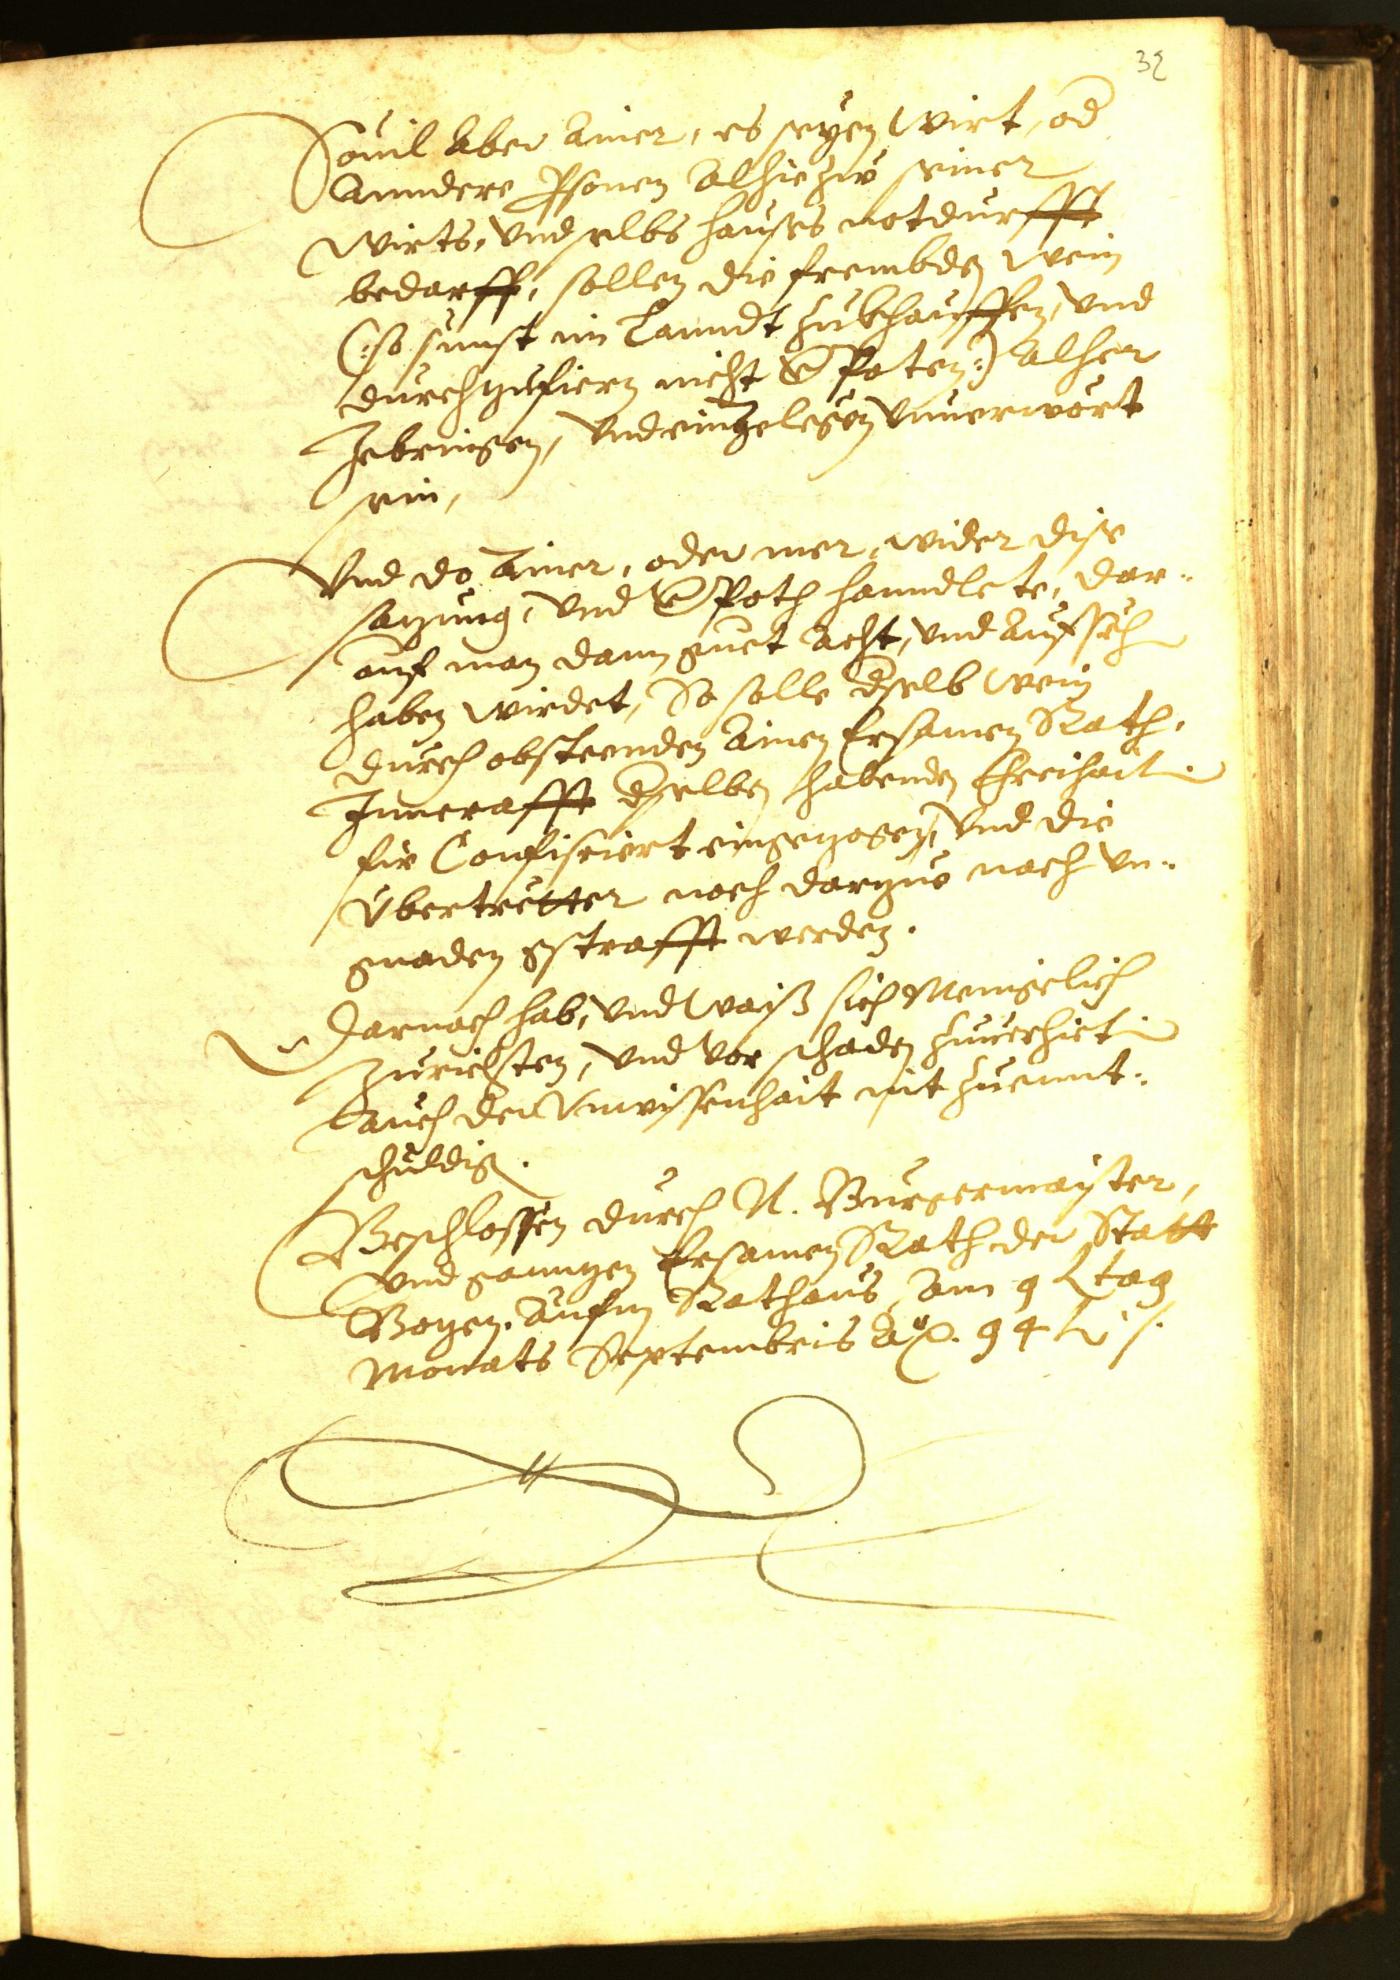 32
Souil Aber Ainer, es seyen Wirt, od
Anndere Psonen Alhie zu seiner
Wirts, vnd selbs hauses notdurfft
bedarff, sollen die frembden Wein
(:so sunst im Lanndt zubkhauffen, vnd
durchzufiern nicht v̄Poten:) Alher
Zebringen, vnd einzelegen vnuerwört
sein,
Vnd do Ainer, oder mer, wider dise
satzung, vnd v̄Poth hanndlete, dar-
auf man dann guet Acht, vnd Aufsech
haben wirdet, So solle dselb Wein
durch obsteenden Ainen Ersamen Rath,
Inncrafft dselben habenden Freihait.
für Confisciert eingezogen, vnd die
Vbertretter noch darzue nach vn-
gnaden gstrafft werden.
Darnach hab, vnd Waiß sich Meniglich
Zurichten, vnd vor schaden zuuerhiet
Auch der Vnwissenhait nit zuennt-
schuldig.
Beschlossen durch N. Burgermaister,
vnd ganntzen Ersamen Rath der Statt
Botzen. Aufm Rathaus, Am 9 tag
Monats Septembris A° 94